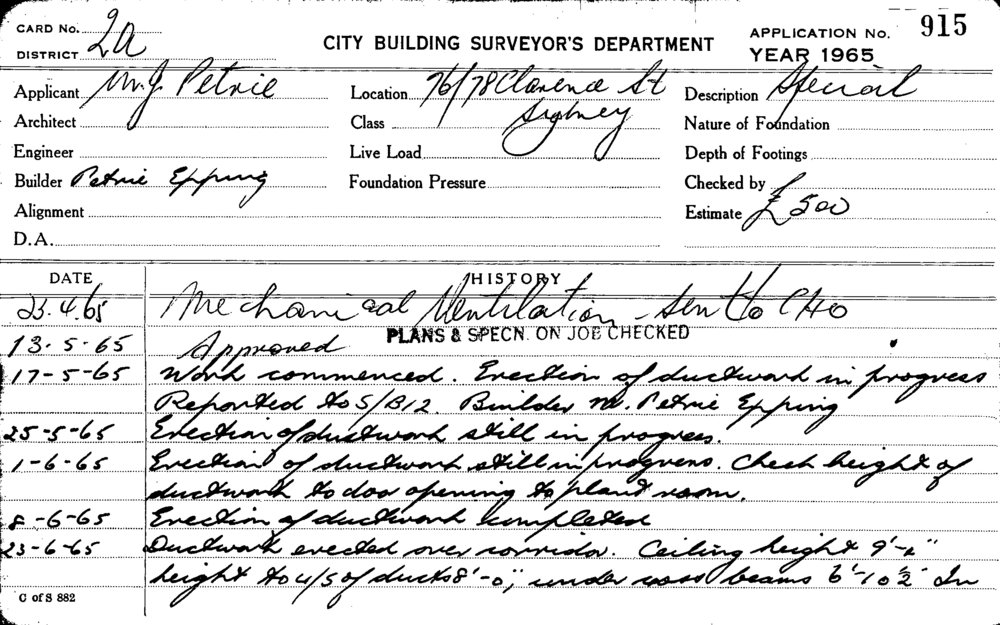 CARD No. 2A
DISTRICT
CITY BUILDING SURVEYOR'S DEPARTMENT
APPLICATION No. 915
YEAR 1965
Applicant M.J. Petrie
Location 76/78 Clarence St
Sydney
Description Special
Architect
Class
Nature of Foundation
Engineer
Live Load
Depth of Footings
Builder Petrie Epping
Foundation Pressure
Checked by
Alignment
Estimate £500
D.A.
DATE HISTORY
23.4.65 Mechanical Ventilation - sent to CHO
PLANS & SPECN. ON JOB CHECKED
13-5-65 Approved
17-5-65 Work commenced. Erection of ductwork in progress
Reported to S/B12. Builder M. Petrie Epping
25-5-65 Erection of ductwork still in progress.
1-6-65 Erection of ductwork still in progress. Check height of
ductwork to door opening to plant room.
8-6-65 Erection of ductwork completed
23-6-65 Ductwork erected over corridor. Ceiling height
height to u/s of ducts 8'-0", under cross beams 6'-10½" In
C of S 882